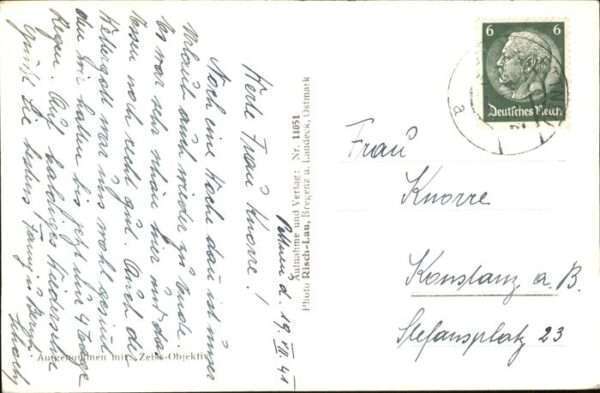 6 6
Deutsches Reich
a
Frau
Knorre
Konstanz a. B.
Stefansplatz 23
Aufnahme und Verlag: Nr. 11051
Photo Risch-Lau, Bregenz a. Landeck, Ostmark
Aufgenommen mit Zeiss-Objektiv
d. 19. VII. 41
Herte Frau Knorre!
Noch eine Woche dau ist unser
Urlaub auch wieder zu Ende.
Es war sehr schön hier und das
Essen noch recht gut. Auch der
Wettergott war uns wohl gesinnt
den wir hatten bis jetzt nur 4 Tage
Regen. Auf baldiges Wiedersehn
grüßt Sie